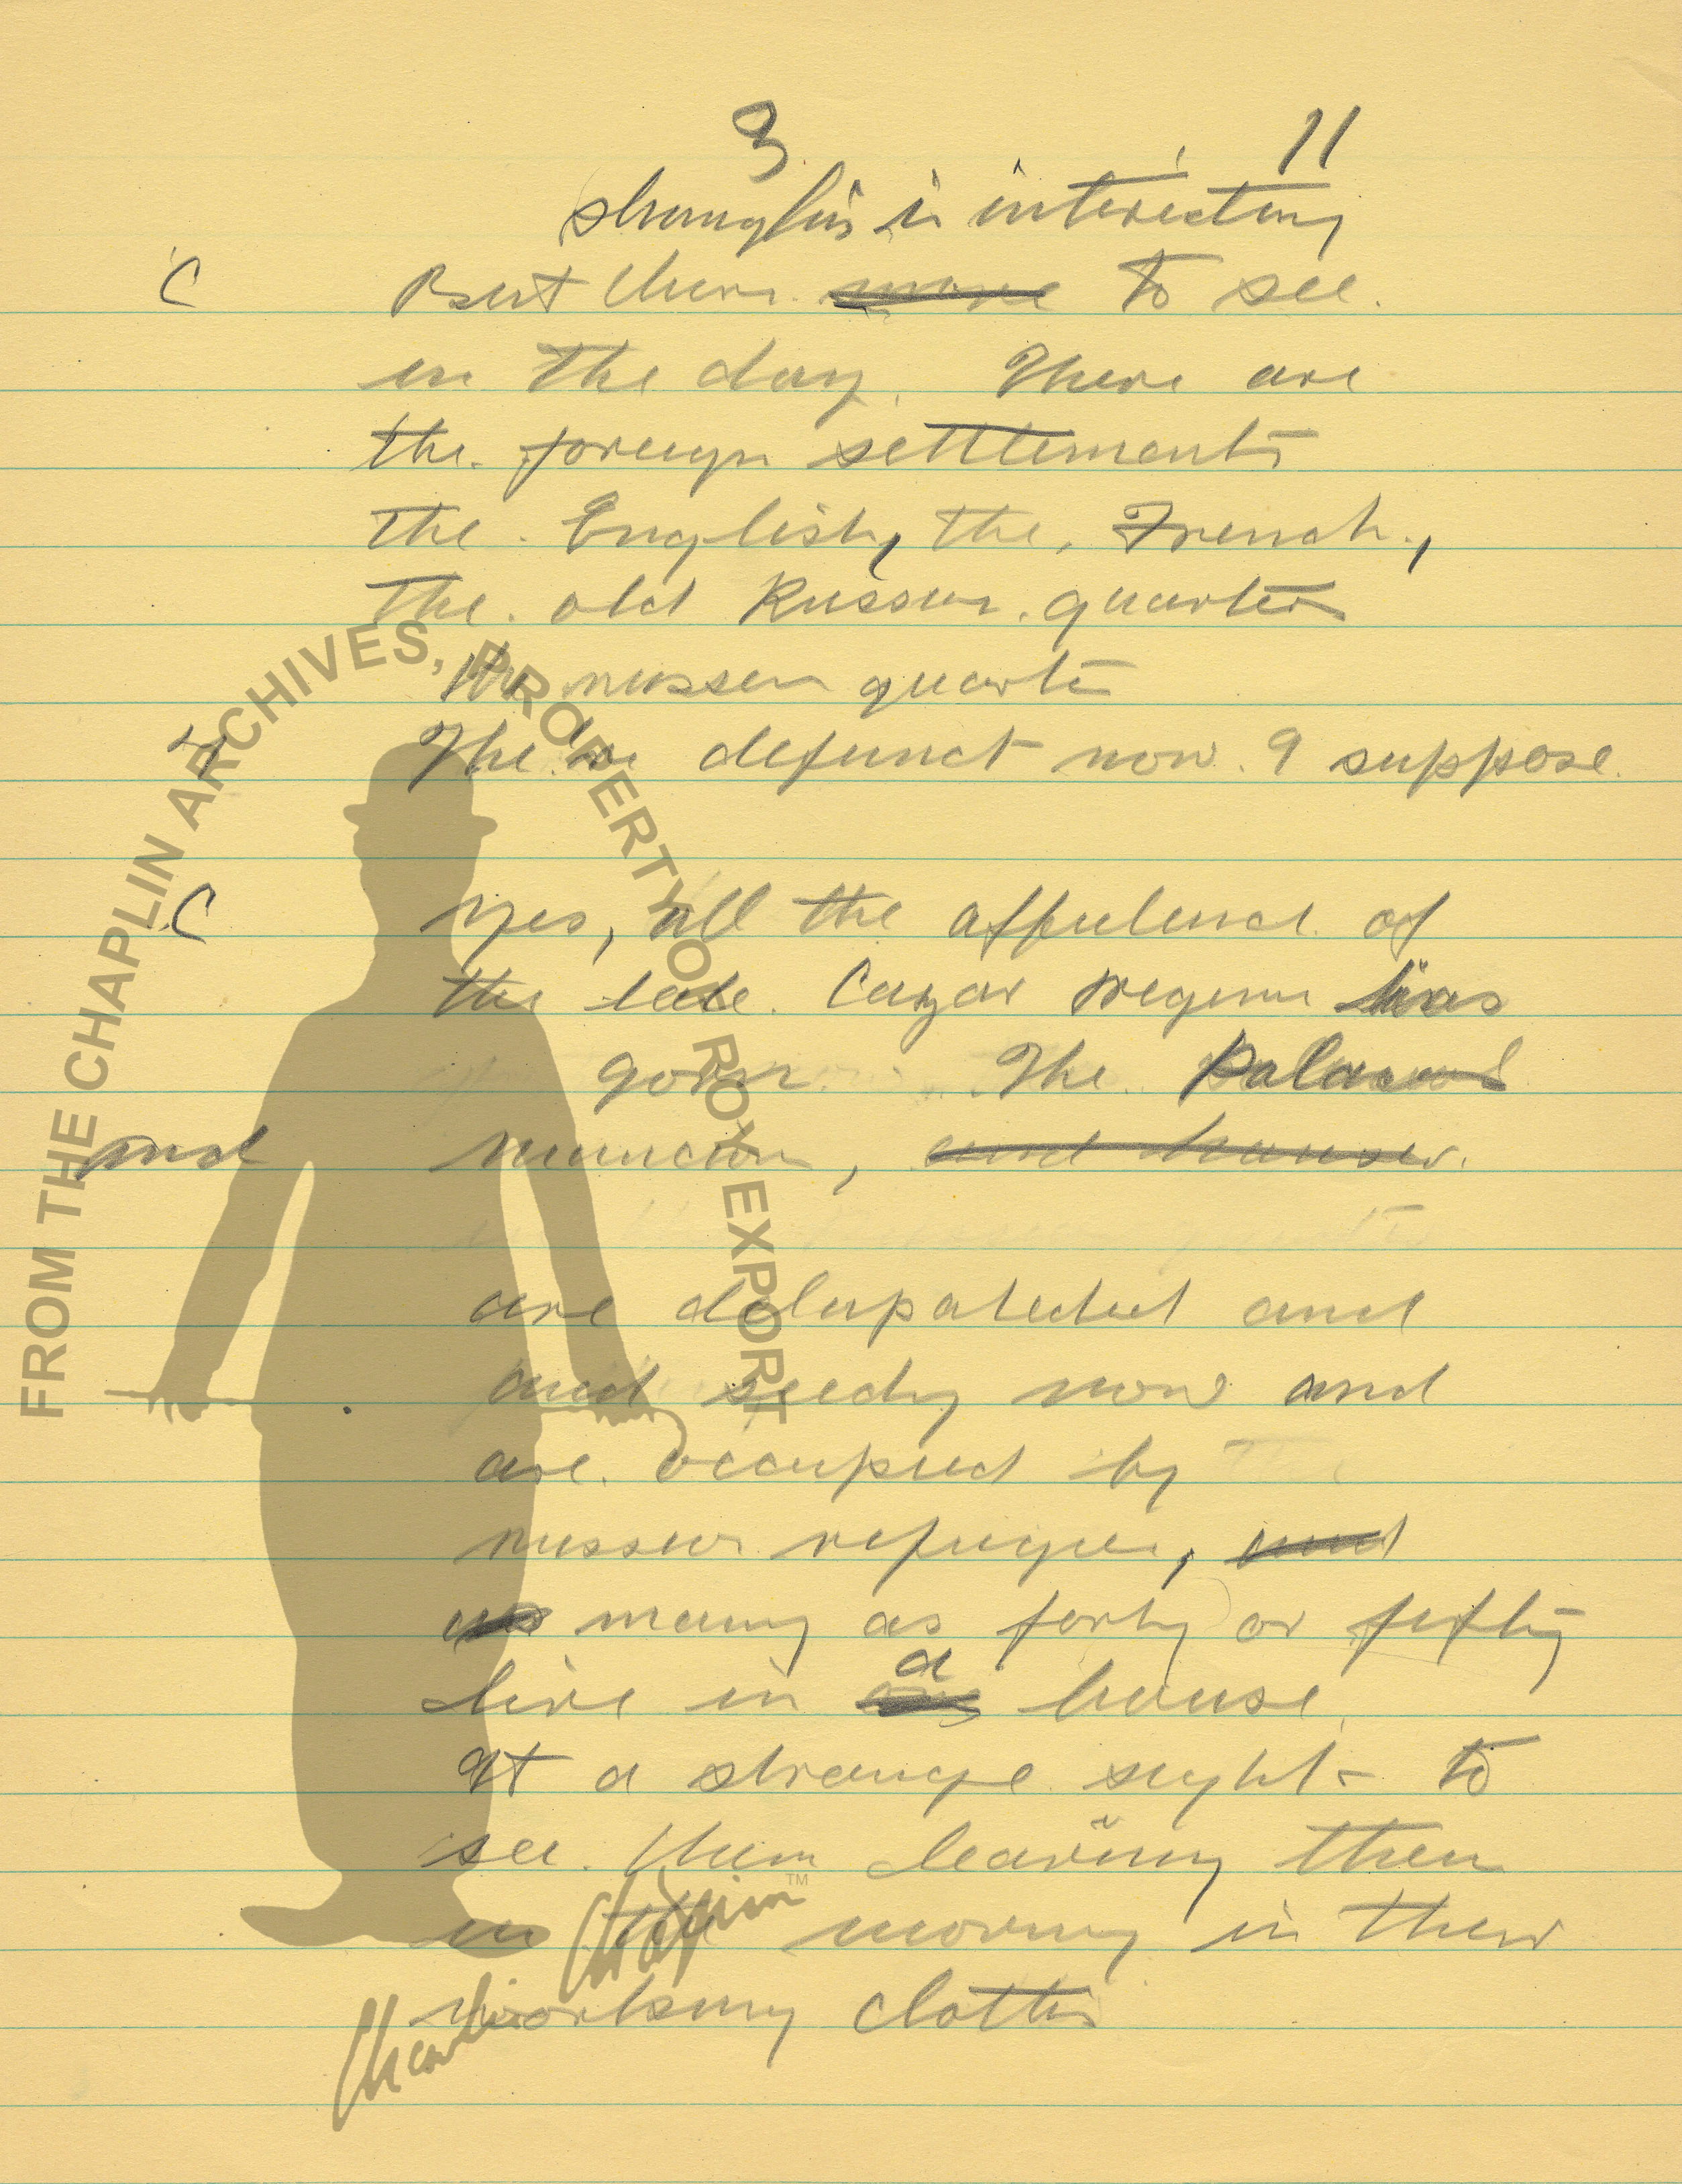 3 11
shanghi is interesting
C But there more to see.
in the day. There are
the foreign settlements
the English, the, French,
The old Russian quarter
the russian quarter
defunct now I suppose.
C Yes, all the affulence of
the late Cazar regeme has
gone. The Palaces
and mancion, and houses.
are delapatated and
and seedy now and
are occupied by
russian refugees, and
as many as forty or fifty
live in a house
It a strange sight to
see them leaving them
in the morning in their
working clothes
FROM THE CHAPLIN ARCHIVES, PROPERTY OF ROY EXPORT
Charlie Chaplin TM